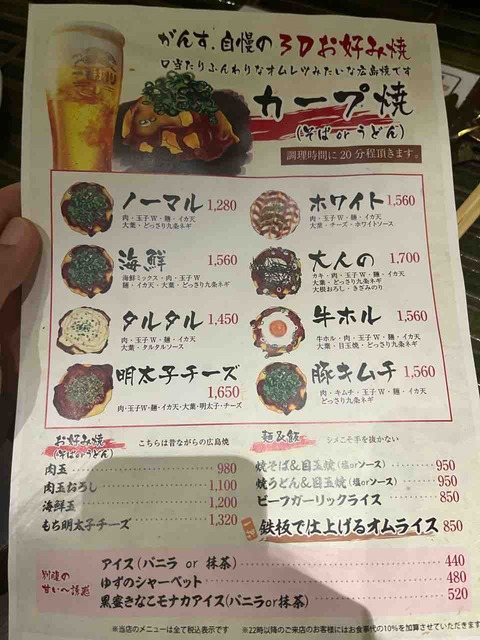 がんす、自慢の3Dお好み焼
口当たりふんわりなオムレツみたいな広島焼です
カープ焼
(そば or うどん)
調理時間に20分程頂きます。
ノーマル 1,280
肉・玉子W・麺・イカ天
大葉・どっさり九条ネギ
ホワイト 1,560
肉・玉子W・麺・イカ天
大葉・チーズ・ホワイトソース
海鮮 1,560
海鮮ミックス・肉・玉子W
麺・イカ天・大葉・どっさり九条ネギ
大人の 1,700
カキ・肉・玉子W・麺・イカ天
大葉・どっさり九条ネギ
大根おろし・きざみのり
タルタル 1,450
肉・玉子W・麺・イカ天
大葉・タルタルソース
牛ホル 1,560
牛ホル・肉・玉子W・麺・イカ天
大葉・目玉焼・どっさり九条ネギ
明太子チーズ
1,650
肉・玉子W・麺・イカ天・大葉・明太子・チーズ
豚キムチ 1,560
肉・キムチ・玉子W・麺・イカ天
大葉・どっさり九条ネギ
お好み焼
(そば or うどん)
こちらは昔ながらの広島焼
肉玉 980
肉玉おろし 1,100
海鮮玉 1,200
もち明太子チーズ 1,320
麺&飯
シメこそ手を抜かない
焼そば&目玉焼(塩orソース) 950
焼うどん&目玉焼(塩orソース) 950
ビーフガーリックライス 850
鉄板で仕上げるオムライス 850
別腹の
甘〜い誘惑
アイス(バニラ or 抹茶) 440
ゆずのシャーベット 480
黒蜜きなこモナカアイス(バニラor抹茶) 520
※当店のメニューは全て税込表示です
※22時以降のご来店のお客様にはお食事代の10%を加算させていただきます